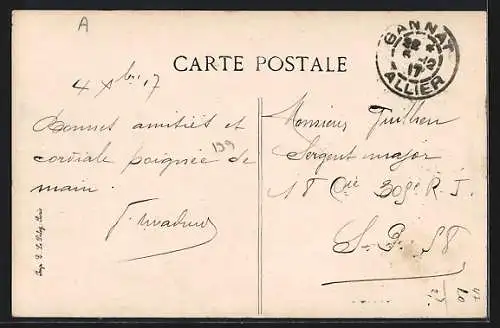 A
CARTE POSTALE
GANNAT
ALLIER
17
4 Xbre 17
Bonnes amitiés et
cordiale poignée de
main.
139
Monsieur Guilhem
Sergent major
18e Cie 309e R. I.
S. P. 58